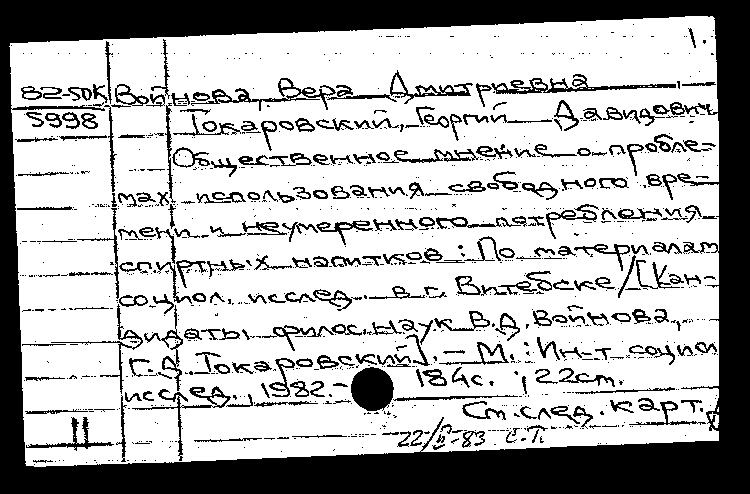 1.
82-50К Войнова, Вера Дмитриевна
5998 Токаровский, Георгий Давидович
Общественное мнение о пробле-
мах использования свободного вре-
мени и неумеренного потребления
спиртных напитков : По материалам
социол. исслед. в г. Витебске / [Кан-
дидаты филос. наук В.Д. Войнова,
Г.Д. Токаровский]. - М. : Ин-т социол.
исслед., 1982. - 184с. ; 22см.
См. след. карт.
11
22/ -83 С.Т.